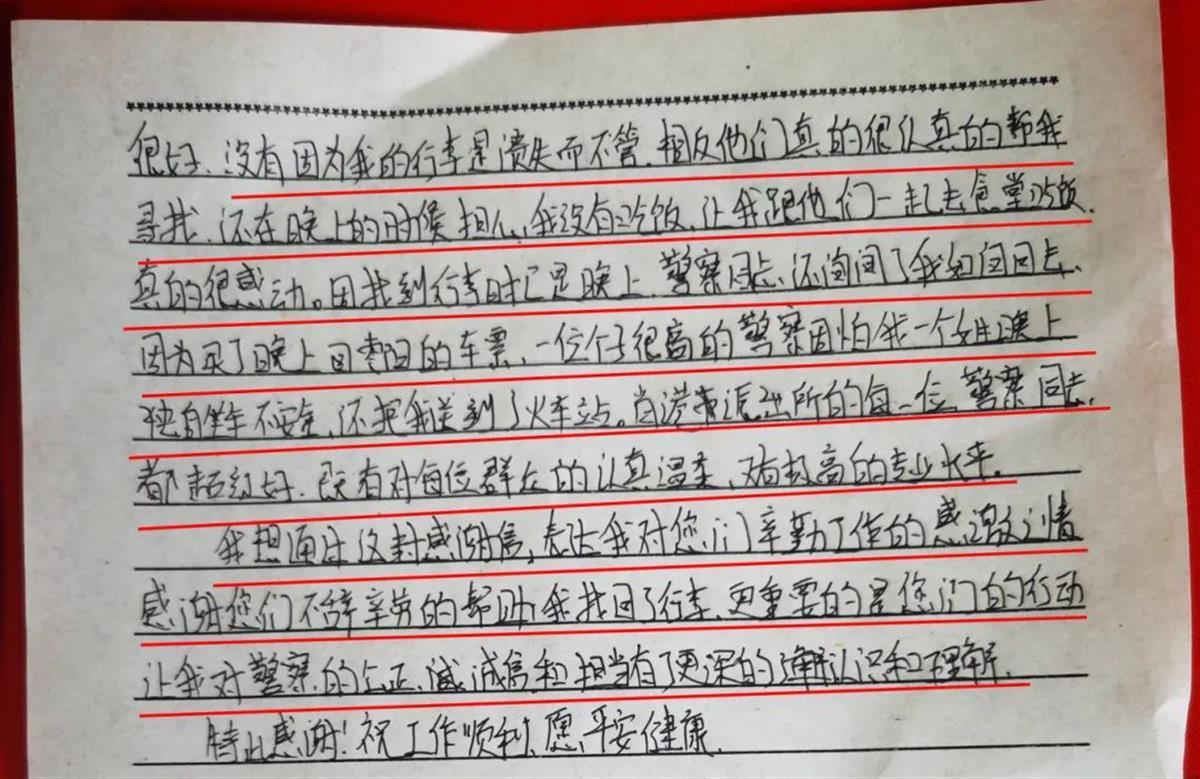 很好、没有因为我的行李是遗失而不管.相反他们真的很认真的帮我
寻找.还在晚上的时候担心我没有吃饭.让我跟他们一起去食堂吃饭.
真的很感动。因找到行李时已是晚上.警察同志.还询问了我如何回去.
因为买了晚上回枣阳的车票.一位个子很高的警察因怕我一个女生晚上
独自坐车不安全.还把我送到了火车站。肖港派出所的每一位警察同志.
都超级好.既有对每位群众的认真温柔、又有极高的专业水平.
我想通过这封感谢信,表达我对您们辛勤工作的感激之情
感谢您们不辞辛劳的帮助我找回了行李.更重要的是您们的行动
让我对警察的公正.诚信和担当有了更深的认识和理解.
特此感谢!祝工作顺利.愿平安健康.